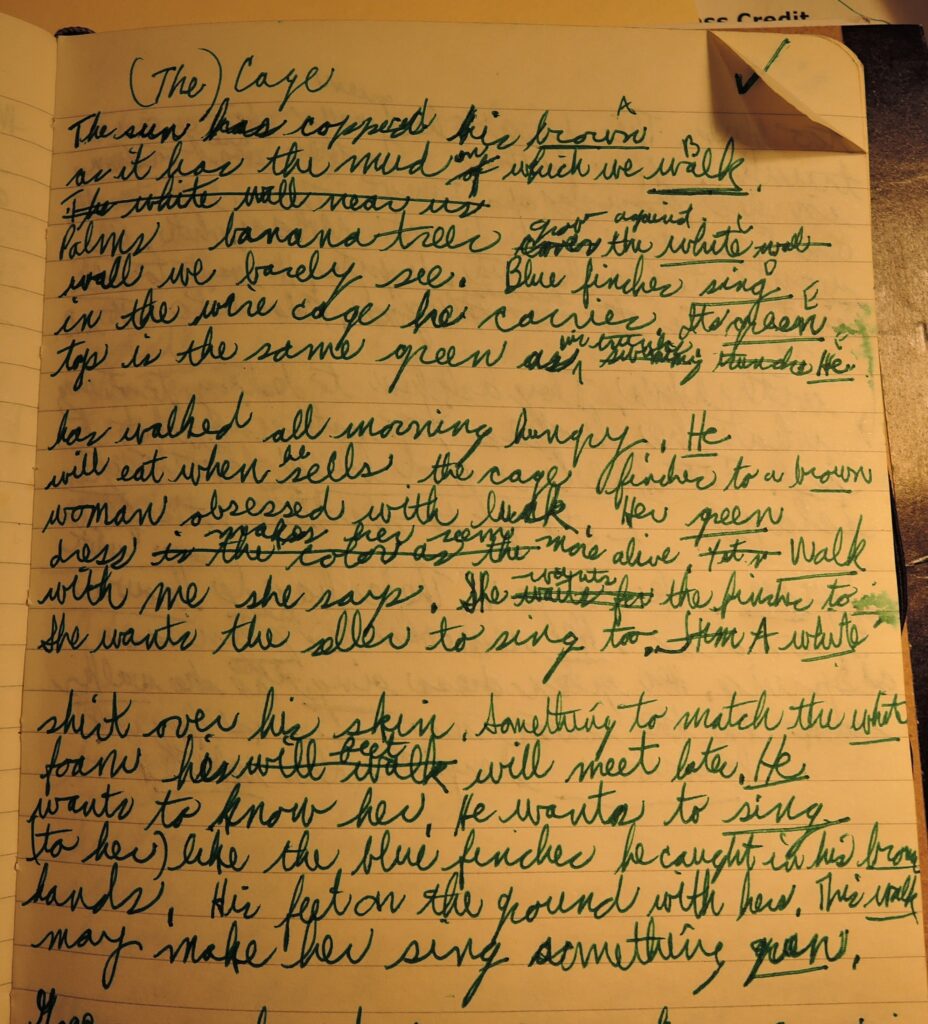 ss Credit
(The) Cage
A
The sun has copper'd his brown
B
as it has the mud on of which we walk.
The white wall near us
grow against
Palms banana trees covers the white wall
wall we barely see. Blue finches sing
D
E
in the wire cage he carries. Its green
top is the same green as He
has walked all morning hungry. He
will eat when he sells the cage finches to a brown
woman obsessed with luck. Her green
makes her seem
dress is the color as the more alive. Walk
wants
with me she says. She waits for the finches to
She wants the seller to sing too. A white
shirt over his skin. Something to match the whit
feet
foam his will walk will meet later. He
wants to know her. He wants to sing
(to her) like the blue finches he caught in his brown
hands. His feet on the ground with hers. This walk
may make her sing something green.